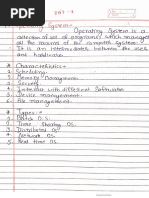 Operating System :-
Operating System is a
collection of set of programs which manages
all the resources of the computer system.
It is an intermediate between the user
and hardware.
* Characteristics :-
1. Scheduling.
2. Memory Management.
3. Security.
4. Interface with different Softwares
5. Device management.
6. File management.
* Types :-
1. Batch OS.
2. Time Sharing OS.
3. Distributed OS.
4. Network OS.
5. Real time OS.